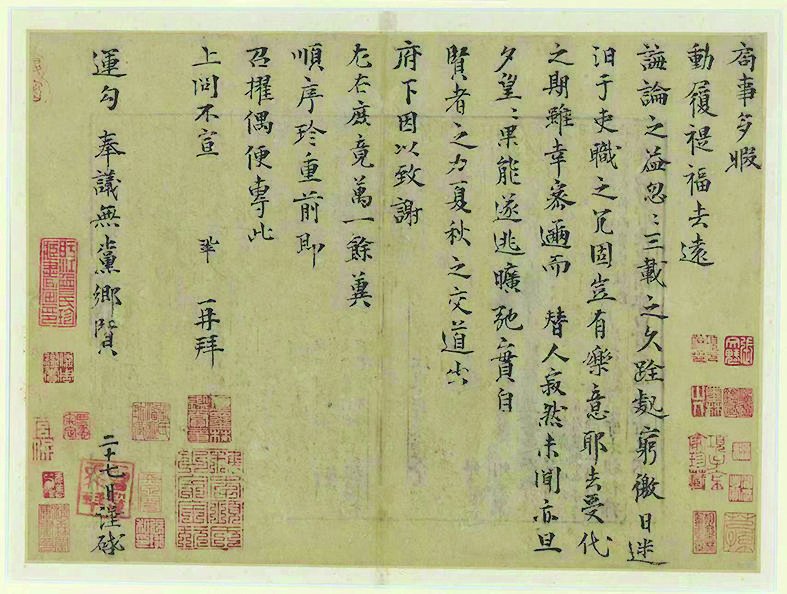 局事多暇
動履禔福去遠
誨論之益忽〻三載之久跧處窮徼日迷
汩于吏職之冗固豈有樂意耶去受代
之期雖幸密邇而 替人寂然未聞亦旦
夕望〻果能遂逃曠弛實自
賢者之力夏秋之交道出
府下因以致謝
左右庶竟萬一餘冀
順序珍重前即
召擢偶便專此
上問不宣 鞏 再拜
運勾 奉議無黨鄉賢 二十七日謹啟